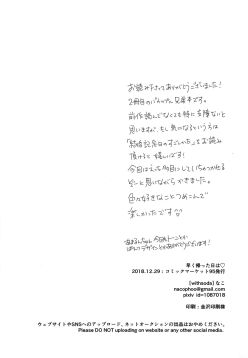 お読み下さってありがとうございました!
2冊目の
前作読んでなくても特に支障ないと
思いますが、もし気になるという方は
「結婚記念日のすごしかた」もお読み
頂けると嬉しいです!
ピンと思いながらかきました。
色々好きなことつめこんで
楽しかったです
早く帰った日は♡
2018.12.29:コミックマーケット95発行
[withsoda] なこ
nacophoo@gmail.com
pixiv id=1087018
印刷:金沢印刷様
ウェブサイトやSNSへのアップロード、ネットオークションの出品はおやめください。
Please DO NOT uploading on website or any other social media.